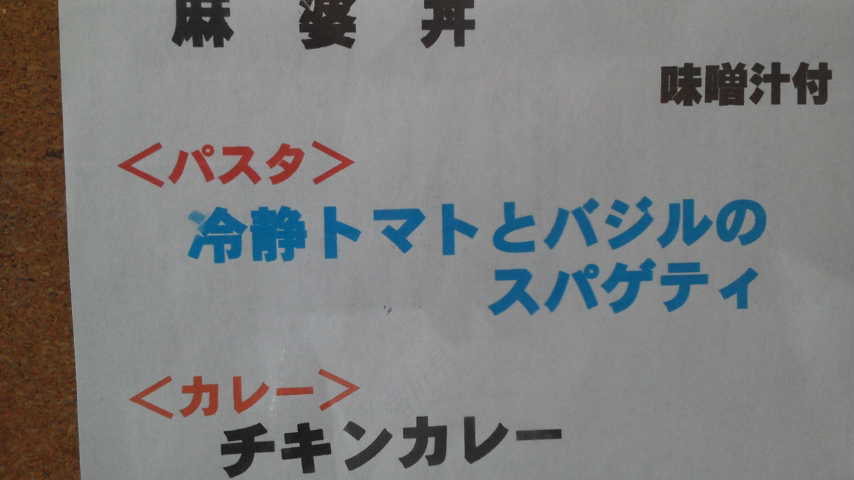 麻婆丼
味噌汁付
＜パスタ＞
冷静トマトとバジルの
スパゲティ
＜カレー＞
チキンカレー